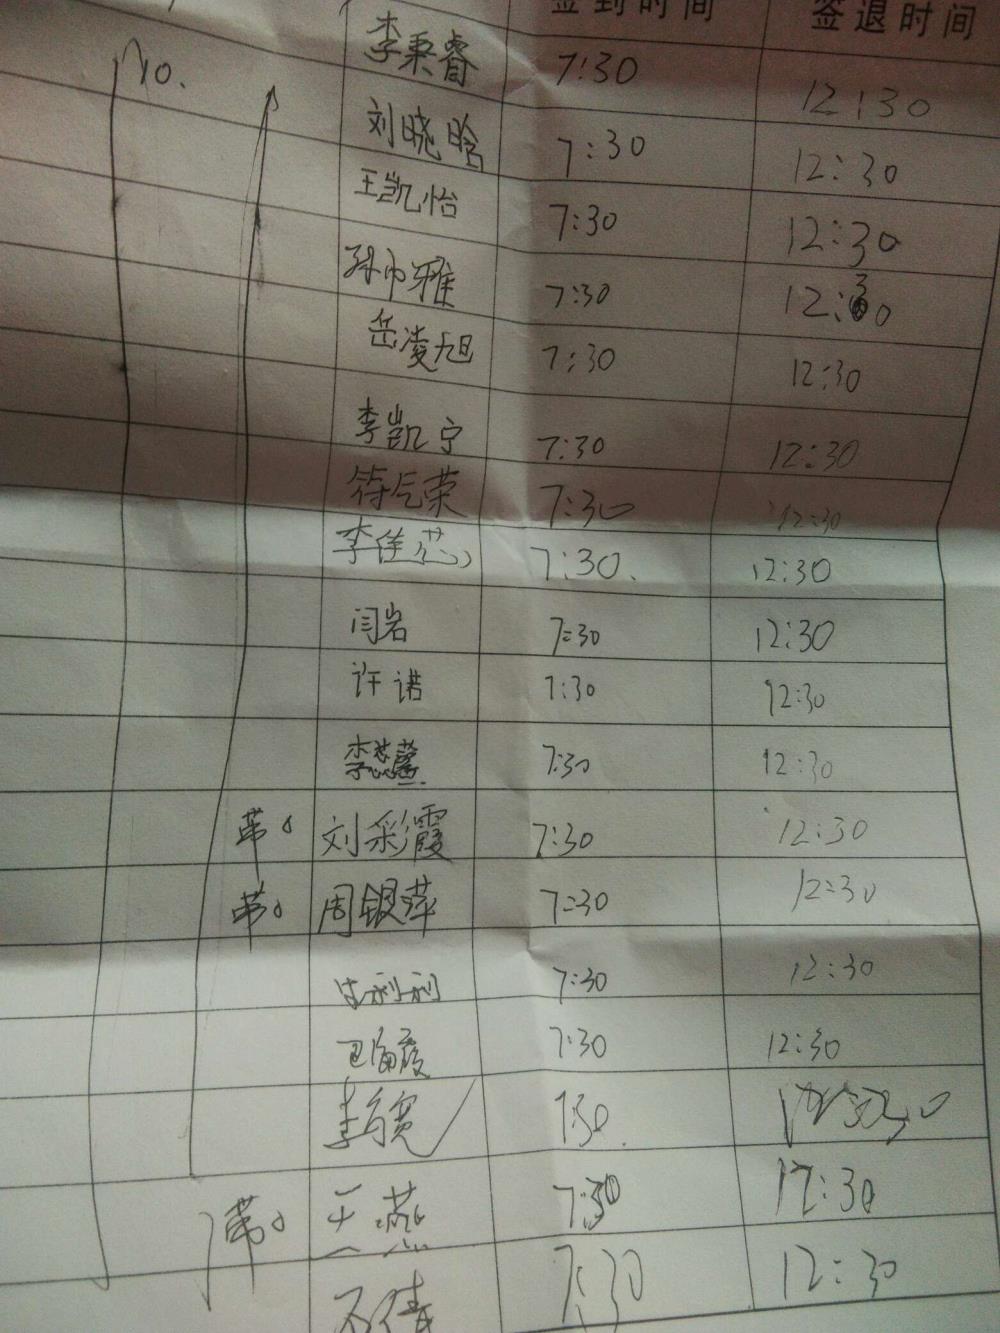 签到时间 签退时间
No. 李秉睿 7:30 12:30
刘晓晗 7:30 12:30
王凯怡 7:30 12:30
孙巾雅 7:30 12:30
岳凌旭 7:30 12:30
李凯宁 7:30 12:30
荣 7:30 12:30
李佳芯 7:30 12:30
闫岩 7:30 12:30
许诺 7:30 12:30
李蕊馨 7:30 12:30
第 刘彩霞 7:30 12:30
第 周银萍 7:30 12:30
利利 7:30 12:30
霞 7:30 12:30
李 宽 7:30
第 王燕 7:30 12:30
倩 7:30 12:30